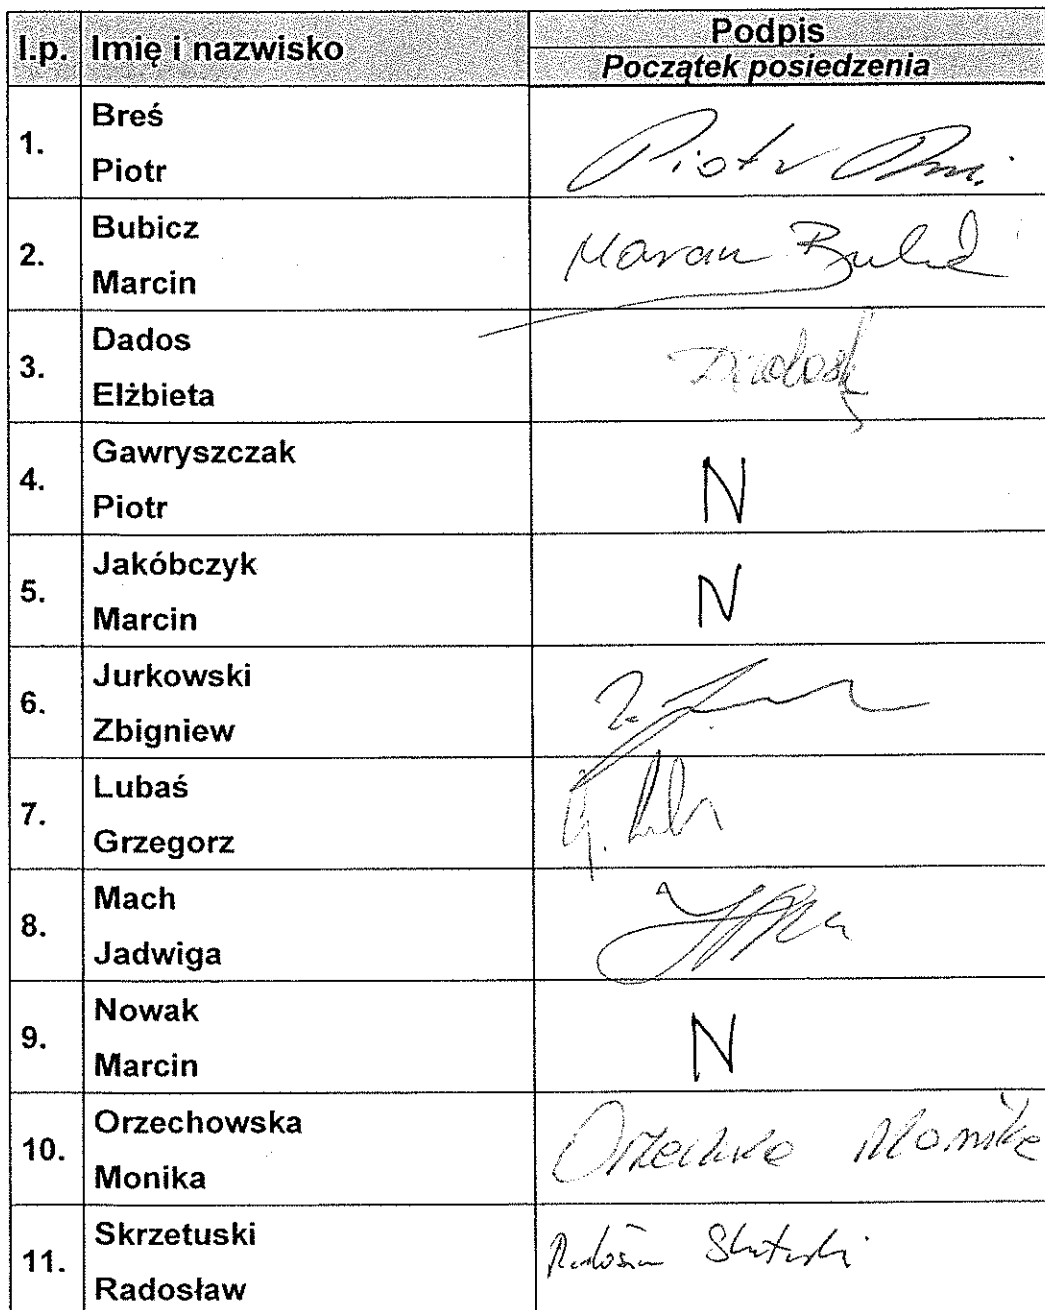 l.p. Imię i nazwisko Podpis
Początek posiedzenia
1. Breś
Piotr
Piotr
2. Bubicz
Marcin
3. Dados
Elżbieta
4. Gawryszczak
Piotr
N
5. Jakóbczyk
Marcin
N
6. Jurkowski
Zbigniew
7. Lubaś
Grzegorz
8. Mach
Jadwiga
9. Nowak
Marcin
N
10. Orzechowska
Monika
Monika
11. Skrzetuski
Radosław